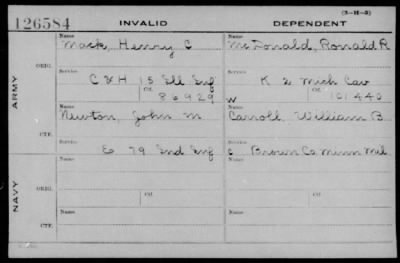 (3-H-3)
126584 INVALID DEPENDENT
Name Name
Mack, Henry C McDonald, Ronald R
ORIG.
Service Service
C & H 15 Ill Inf K 2 Mich Cav
Ctf. Ctf.
86929 W 101440
ARMY
Name Name
Newton, John M Carroll, William B
CTF.
Service Service
E 79 Ind Inf C Brown Co Minn Mil
Name Name
ORIG.
Service Ctf. Service Ctf.
NAVY
Name Name
CTF.
Service Service